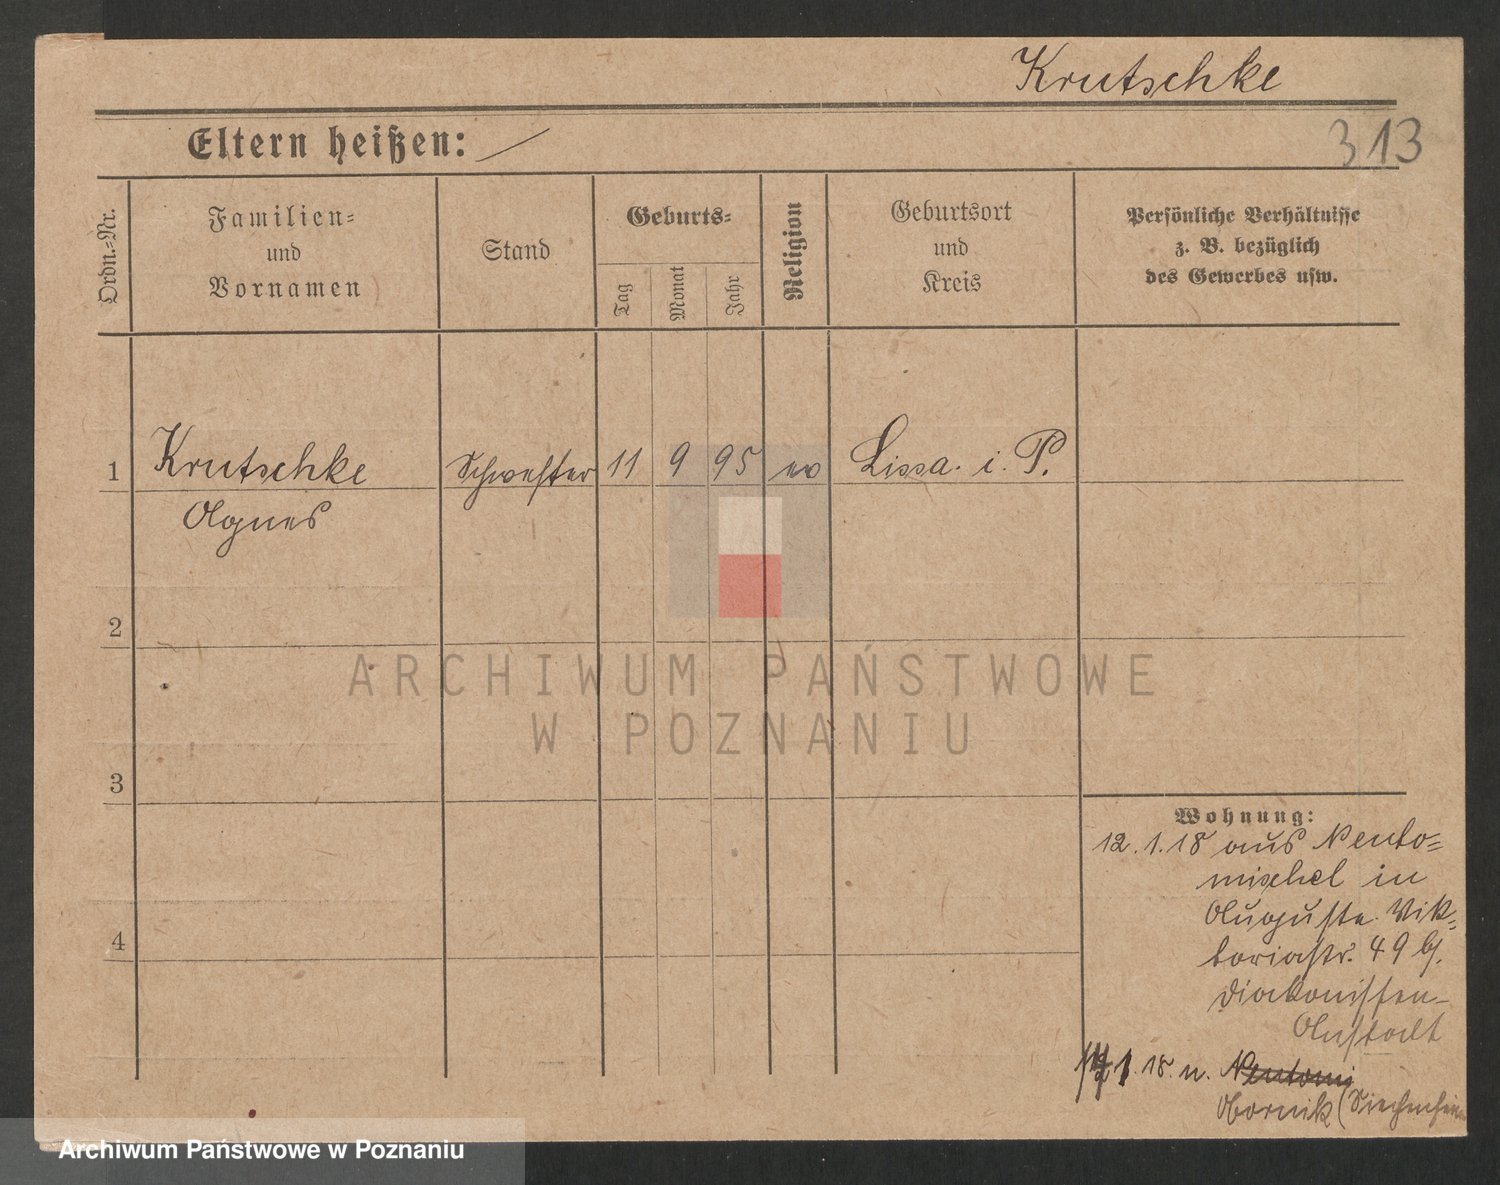 Krutschke
Eltern heißen:
313
Ordn.-Nr.
Familien-
und
Vornamen
Stand
Geburts-
Tag
Monat
Jahr
Religion
Geburtsort
und
Kreis
Persönliche Verhältnisse
z. B. bezüglich
des Gewerbes usw.
1
Krutschke
Agnes
Schwester
11
9
95
ev
Lissa. i. P.
2
3
4
Wohnung:
12.1.18 aus Neuto=
mischel in
Auguste. Vik=
toriastr. 49 b/.
Diakonissen-
Anstalt
1.18. n. Neutomi
Obornik (Siechenheim
ARCHIWUM PAŃSTWOWE
W POZNANIU
Archiwum Państwowe w Poznaniu